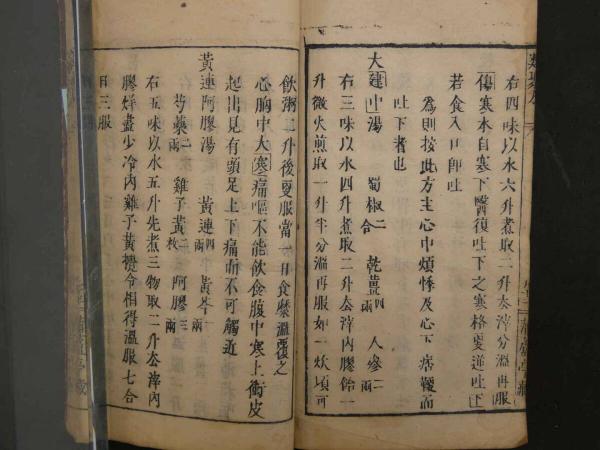 右四味以水六升煮取二升去滓分溫再服
傷寒本自寒下醫復吐下之寒格更逆吐下
若食入口即吐
為則按此方主心中煩悸及心下痞鞕而
吐下者也
大建中湯 蜀椒二合 乾薑四兩 人參二兩
右三味以水四升煮取二升去滓內膠飴一
升微火煎取一升半分溫再服如一炊頃可
飲粥二升後更服當一日食糜溫覆之
心胸中大寒痛嘔不能飲食腹中寒上衝皮
起出見有頭足上下痛而不可觸近
黃連阿膠湯 黃連四兩 黃芩一兩
芍藥二兩 雞子黃二枚 阿膠三兩
右五味以水五升先煮三物取二升去滓內
膠烊盡少冷內雞子黃攪令相得溫服七合
日三服